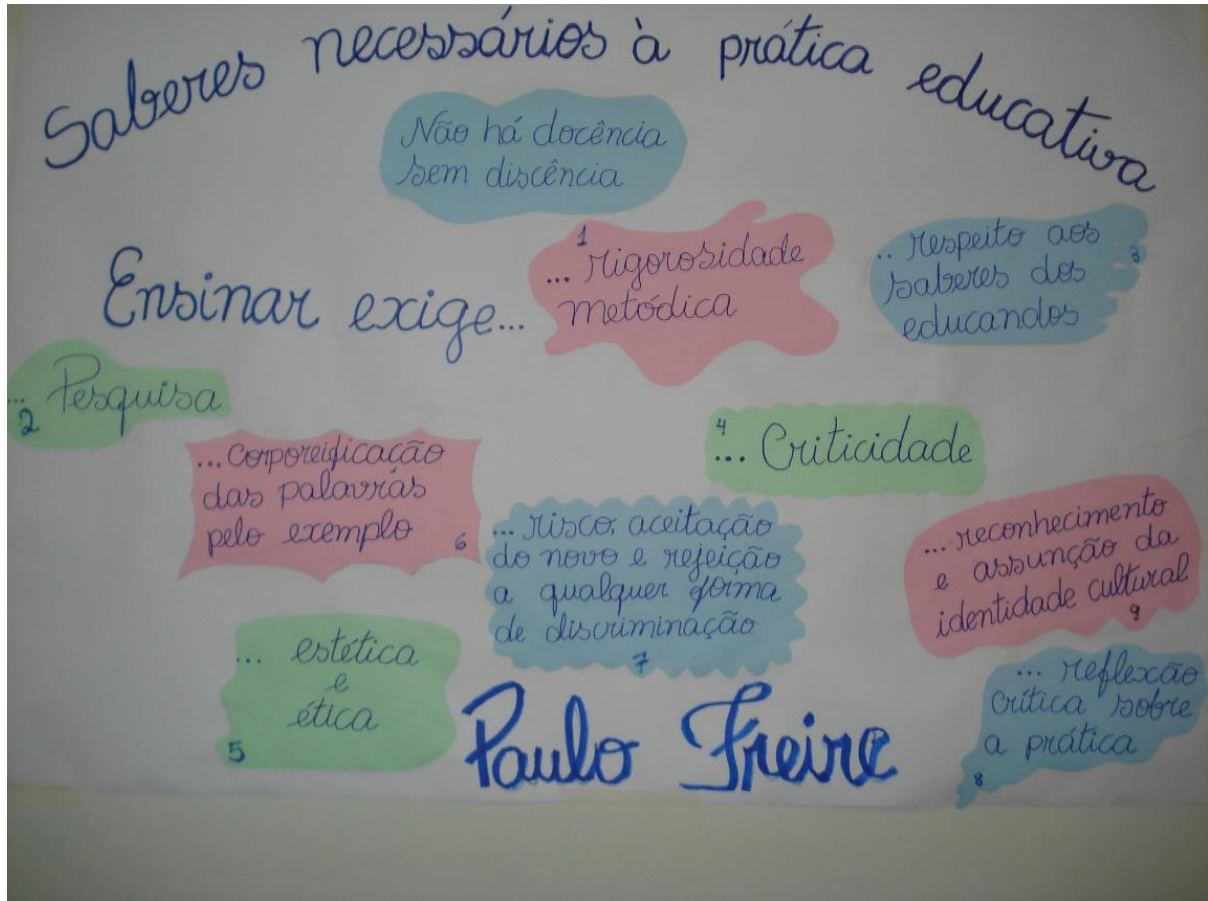 Saberes necessários à prática educativa
Não há docência
sem discência
Ensinar exige...
1
... rigorosidade
metódica
.. respeito aos
saberes dos
educandos
3
... Pesquisa
2
4
... Criticidade
... corporeificação
das palavras
pelo exemplo
6
... risco, aceitação
do novo e rejeição
a qualquer forma
de discriminação
7
... reconhecimento
e assunção da
identidade cultural
9
... estética
e
ética
5
... reflexão
crítica sobre
a prática
8
Paulo Freire